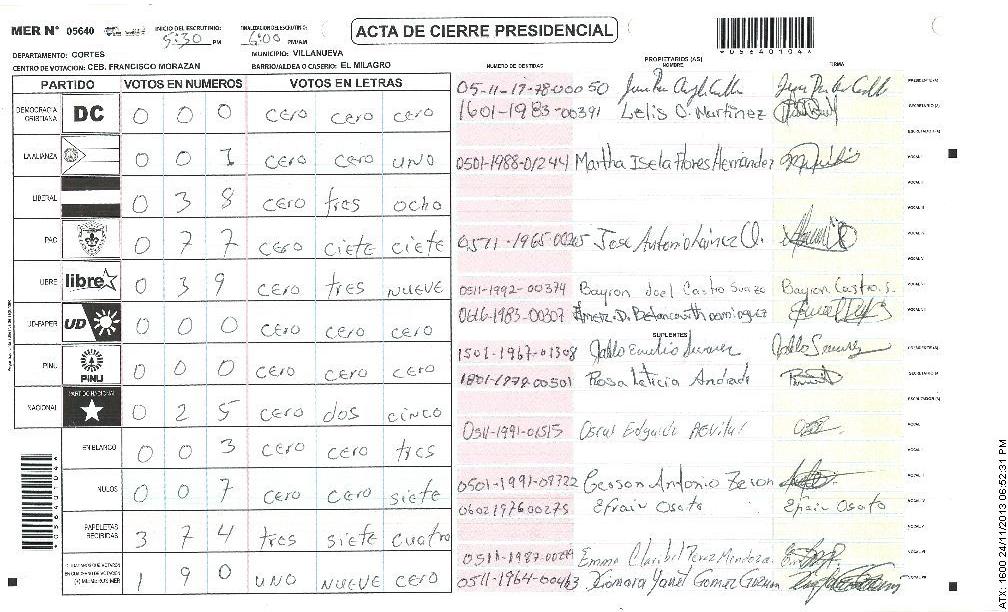 MER Nº 05640 INICIO DEL ESCRUTINIO: 5:30 PM FINALIZACION DEL ESCRUTINIO: 6:00 PM/AM
ACTA DE CIERRE PRESIDENCIAL
05640104
DEPARTAMENTO: CORTES MUNICIPIO: VILLANUEVA
CENTRO DE VOTACION: CEB. FRANCISCO MORAZAN BARRIO/ALDEA O CASERIO: EL MILAGRO
PARTIDO VOTOS EN NUMEROS VOTOS EN LETRAS
DEMOCRACIA CRISTIANA DC 0 0 0 cero cero cero
LA ALIANZA 0 0 1 cero cero uno
LIBERAL 0 3 8 cero tres ocho
PAC 0 7 7 cero ciete ciete
LIBRE libre 0 3 9 cero tres nueve
UD-FAPER UD 0 0 0 cero cero cero
PINU PINU 0 0 0 cero cero cero
NACIONAL PARTIDO NACIONAL 0 2 5 cero dos cinco
EN BLANCO 0 0 3 cero cero tres
NULOS 0 0 7 cero cero siete
PAPELETAS RECIBIDAS 3 7 4 tres siete cuatro
1 9 0 uno nueve cero
NUMERO DE IDENTIDAD PROPIETARIOS (AS) NOMBRE FIRMA
PRESIDENTE(A)
1601-1983-00391 Lelis O. Martinez SECRETARIO (A)
ESCRUTADOR (A)
0501-1988-01244 Martha Isela Flores Hernandez VOCAL I
VOCAL II
VOCAL III
Jose Antonio Lainez O. VOCAL IV
VOCAL V
0511-1992-00374 Bayron Joel Castro Suazo Bayron Castro S. VOCAL VI
-1983-00307
SUPLENTES
1501-1967-01308 Pablo Emilio Suarez Pablo Suarez
1801-1979-00501 Rosa Leticia Andrade SECRETARIO (A)
ESCRUTADOR (A)
0511-1991-01515 Oscar Edgardo VOCAL I
0501-1991-09722 Gerson Antonio Zeron
0602197600275 Efrain Osorto Efrain Osorto VOCAL IV
VOCAL V
Emma Claribel Perez Mendoza VOCAL VI
Xiomara Yanet Gomez
ATX: 1600 24/11/2013 06:52:31 PM